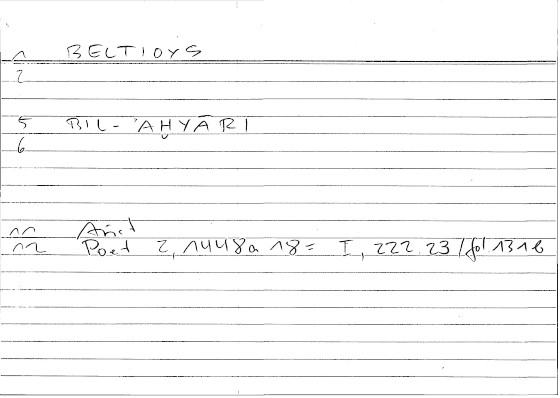 1 BELTIOYS
2
5 BIL-'AḪYĀRI
6
11 Arist
12 Poet 2, 1448a 18 = I, 222.23 / fol 131b